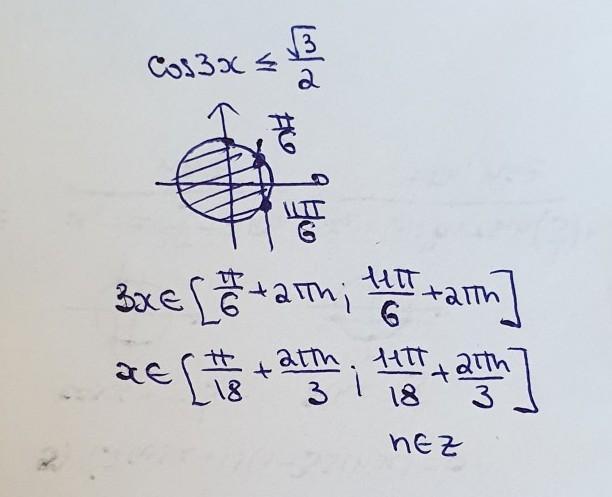 cos3x ≤ √3/2
π/6
0
11π/6
3x ∈ [π/6 + 2πn; 11π/6 + 2πn]
x ∈ [π/18 + 2πn/3; 11π/18 + 2πn/3]
n ∈ z